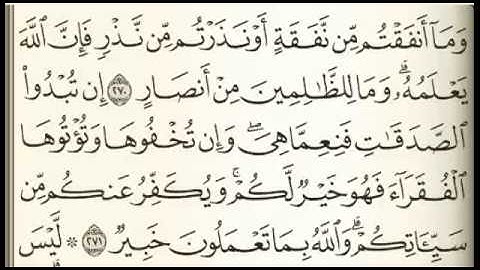 وَمَآ أَنفَقۡتُم مِّن نَّفَقَةٍ أَوۡ نَذَرۡتُم مِّن نَّذۡرٖ فَإِنَّ ٱللَّهَ
يَعۡلَمُهُۥۗ وَمَا لِلظَّٰلِمِينَ مِنۡ أَنصَارٍ ٢٧٠ إِن تُبۡدُواْ
ٱلصَّدَقَٰتِ فَنِعِمَّا هِيَۖ وَإِن تُخۡفُوهَا وَتُؤۡتُوهَا
ٱلۡفُقَرَآءَ فَهُوَ خَيۡرٞ لَّكُمۡۚ وَيُكَفِّرُ عَنكُم مِّن
سَيِّـَٔاتِكُمۡۗ وَٱللَّهُ بِمَا تَعۡمَلُونَ خَبِيرٞ ٢٧١ ۞ لَّيۡسَ